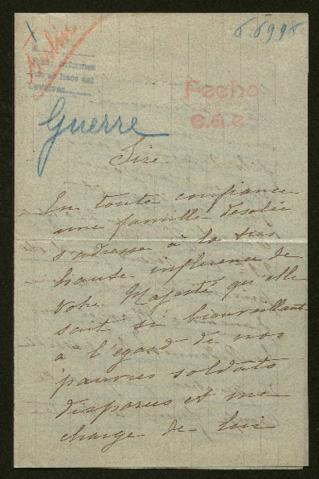 Guerre
Fecho
Sire
En toute confiance
une famille désolée
s'adresse à la très
haute influence de
Votre Majesté qu'elle
sent si bienveillante
à l'égard de nos
pauvres soldats
disparus et me
charge de lui